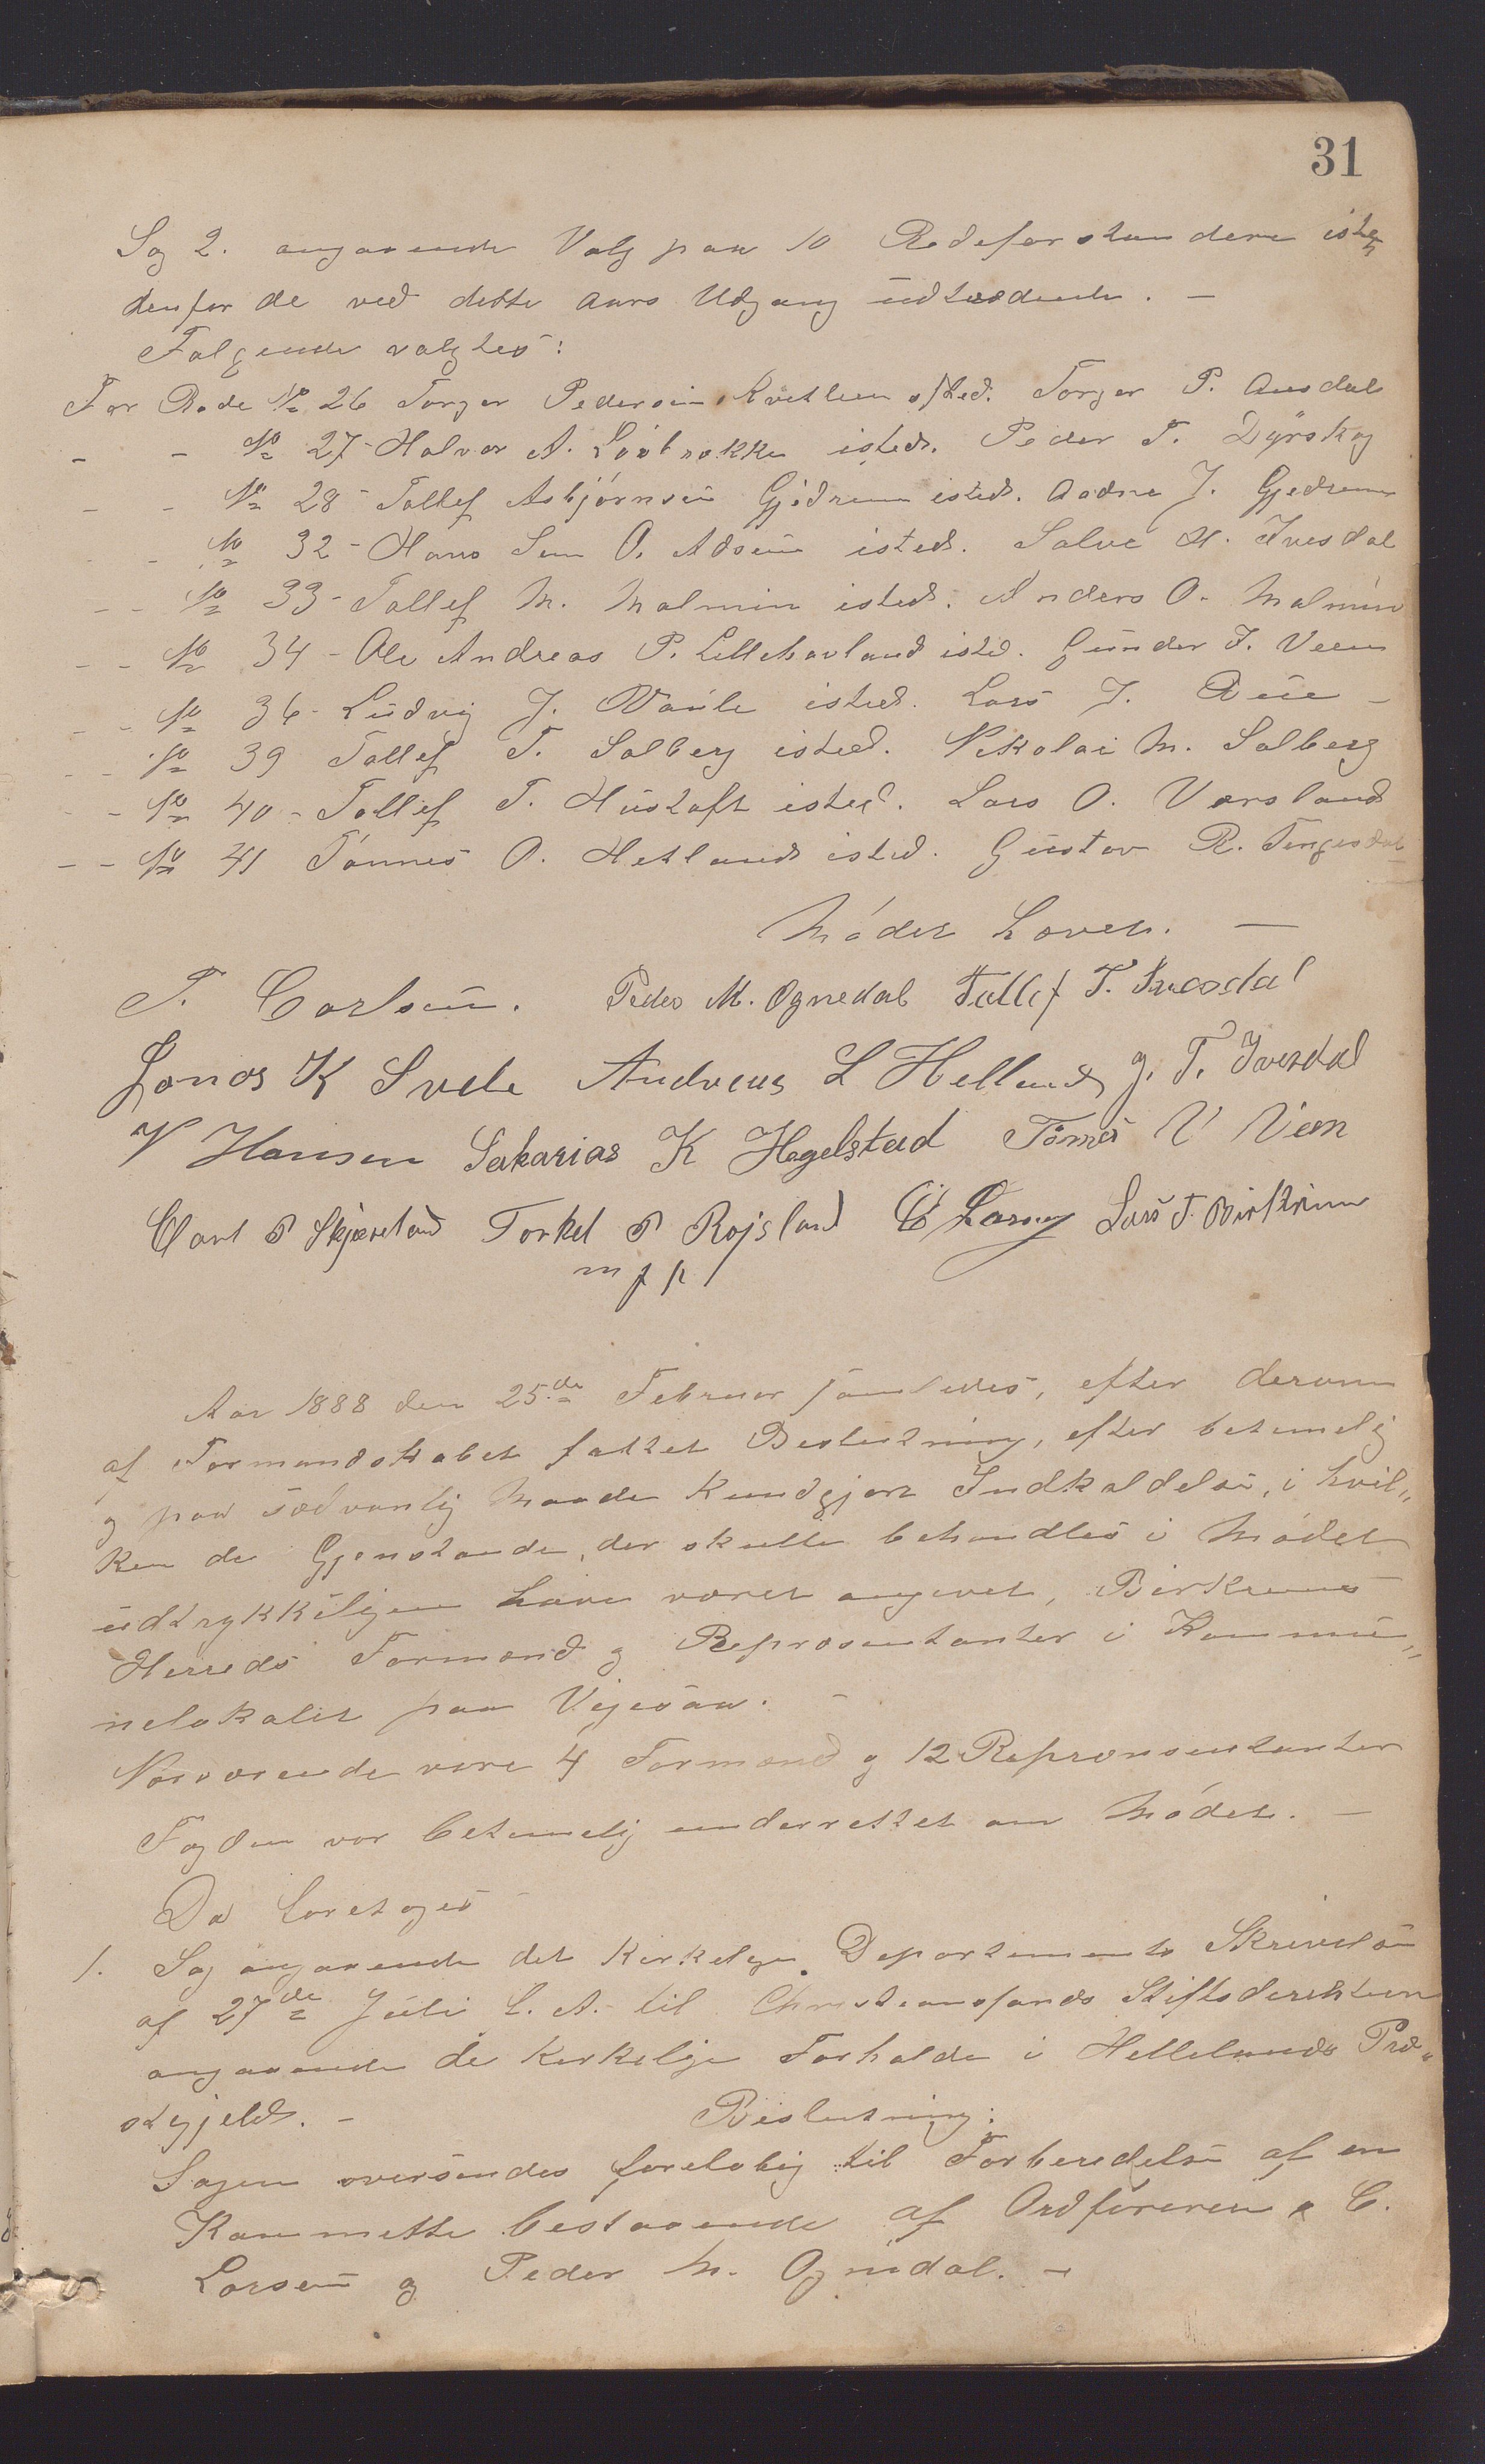 31
Sag 2. angaaende Valg paa 10 Rodeforstandere iste
denfor de ved dette Aars Udgang udtrædende. —
Følgende valgtes:
For Rode No 26 Torger Pedersen Kvetlun isted. Torger P. Ausdal
- - No 27 - Halvor A. Løvbrekke isted. Peder T. Dyrskog
- - No 28 - Tollef Asbjørnsen Gjedrem isted. Aadne J. Gjedrem
- - No 32 - Hans Sem O. Adsem isted. Salve H. Ivesdal
- - No 33 - Tollef M. Malmin isted. Anders O. Malmin
- - No 34 - Ole Andreas P. Lillehavland isted. Gunder T. Veen
- - No 36 - Ludvig J. Vaule isted. Lars J. Bue -
- - No 39 Tollef T. Solberg isted. Nikolai M. Solberg
- - No 40 - Tollef T. Hustoft isted. Lars O. Versland
- - No 41 Tønnes O. Hetland isted. Gustav R. Tengesdal
Mødet hævet. —
T. Carlsen. Peder M. Ognedal Tollef T. Ivesdal
Jonas K Svele Andreas L Helland G. T. Ivesdal
V Hansen Sakarias K Hegelstad Tønnes V Veen
Carl P Skjæveland Torkel P Røjsland C Larsen Lars T. Birkrim
m f p
Aar 1888 den 25de Februar samledes, efter derom
af Formandskabet fattet Beslutning, efter betimelig
og paa sædvanlig Maade kundgjort Indkaldelse, i hvil„
ken de Gjenstande, der skulle behandles i Mødet
udtrykkeligen have været angivet, Birkrems
Herreds Formænd og Repræsentanter i Kommu„
nelokalet paa Vigesaa. -
Nærværende vare 4 Formænd og 12 Repræsentanter
Fogden var betimelig underrettet om Mødet. —
Da foretoges
1. Sag angaaende det kirkelige Departements Skrivelse
af 27de Juli f. A. til Christianssands Stiftsdirektion
angaaende de kirkelige Forholde i Hellelands Præ„
stegjeld. - Beslutning:
Sagen oversendes foreløbig til Forberedelse af en
Kommitte bestaaende af Ordføreren, C.
Larsen og Peder M. Ognedal. -